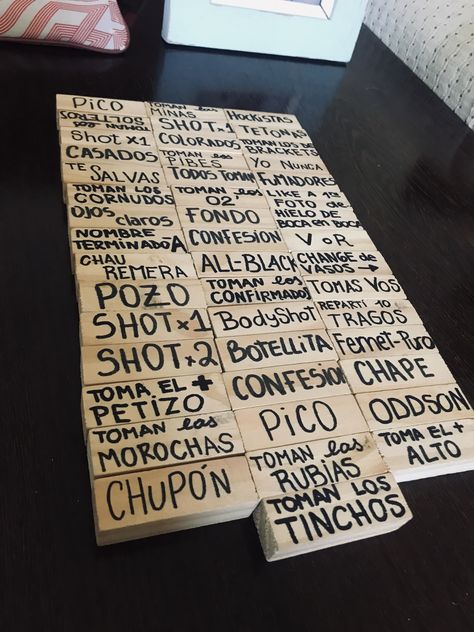 PICO
SOLTEROS
SHOT x1
CASADOS
TE SALVAS
TOMAN LOS
CORNUDOS
OJOS claros
NOMBRE
TERMINADO/A
CHAU
REMERA
POZO
SHOT x1
SHOT x2
TOMA EL +
PETIZO
TOMAN las
MOROCHAS
CHUPÓN
TOMAN las
MINAS
SHOT x1
COLORADOS
TOMAN los
PIBES
TODOS TOMAN
TOMAN los
02'
FONDO
CONFESIÓN
ALL-BLACK
TOMAN los
CONFIRMADO
BodySHOT
BOTELLITA
CONFESION
PICO
TOMAN las
RUBIAS
TOMAN LOS
TINCHOS
HOCKISTAS
TETONAS
TOMAN LOS DE
BRACKETS
YO NUNCA
FUMADORES
LIKE A
FOTO de
HIELO DE
BOCA en BOCA
V o R
CHANGE de
VASOS →
TOMAS VOS
REPARTÍ 10
TRAGOS
Fernet-Puro
CHAPE
ODDSON
TOMA EL +
ALTO